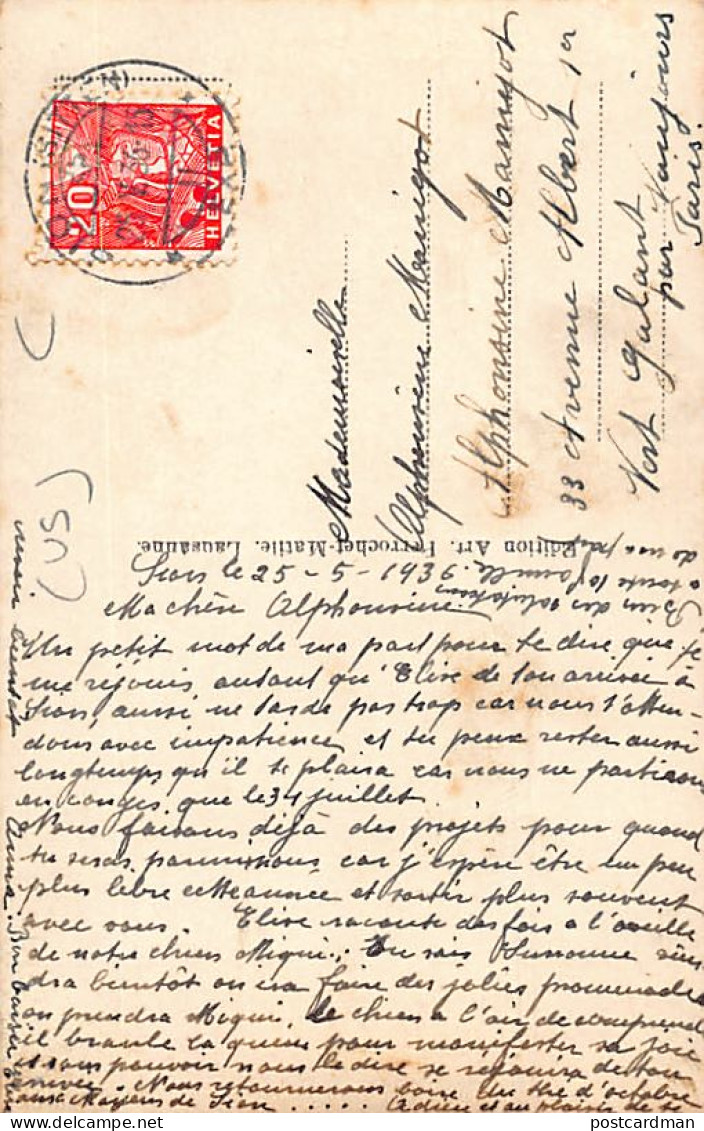 HELVETIA
20
SION (SITTEN)
Mademoiselle
Alphonsine Manigot
Alphonsine Manigot
33 Avenue Albert 1er
Vert Galant
par Vaujours
Paris.
Edition Art. Perrochet-Matile. Lausanne.
(VS)
Sion le 25-5-1936
Ma chère Alphonsine.
Un petit mot de ma part pour te dire que je
me réjouis autant qu'Elise de ton arrivée à
Sion, aussi ne tarde pas trop car nous t'atten-
dons avec impatience et tu peux rester aussi
longtemps qu'il te plaira car nous ne partirons
en congés que le 31 juillet.
Nous faisons déjà des projets pour quand
tu seras parmi nous car j'espère être un peu
plus libre cette année et sortir plus souvent
avec vous. Elise raconte des fois a l'oreille
de notre chien Miqui: Tu sais Suzanne vien
dra bientôt on ira faire des jolies promenades
on prendra Miqui, le chien a l'air de comprendre
il branle la queue pour manifester sa joie
et sans pouvoir nous le dire se réjouira de ton
arrivée. Nous retournerons boire du thé d'octobre
aux Mayens de Sion ..... Adieu et au plaisir de te
revoir bientôt
Anna. Bon baiser Elise
Bien des salutations
a toute la famille
de ma part
postcardman